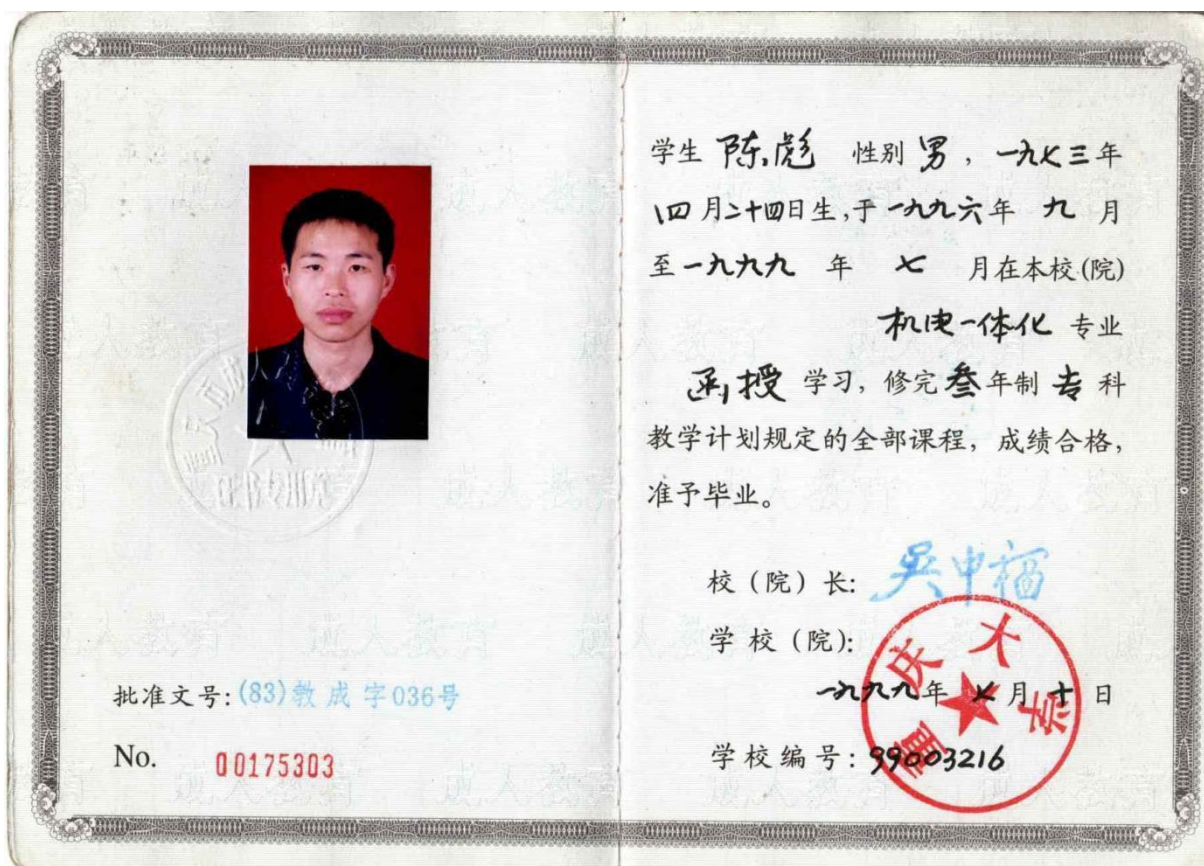 批准文号:(83)教成字036号
No. 00175303
学生 陈彪 性别 男，一九七三年
四月二十四日生,于一九九六年 九 月
至一九九九 年 七 月在本校(院)
机电一体化 专业
函授 学习，修完叁年制专科
教学计划规定的全部课程，成绩合格，
准予毕业。
校（院）长: 吴中福
学校（院）:
重庆大学
一九九九年 七月 十日
学校编号: 99003216
成人教育